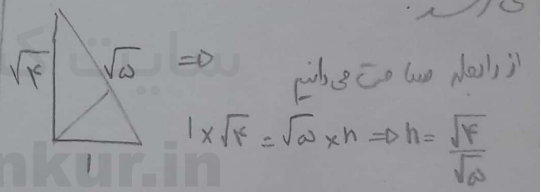 √۴
√۵
1
=>
از رابطه مساحت می‌دانیم
1 × √۴ = √۵ × h => h = √۴ / √۵
سایت ک
nkur.in